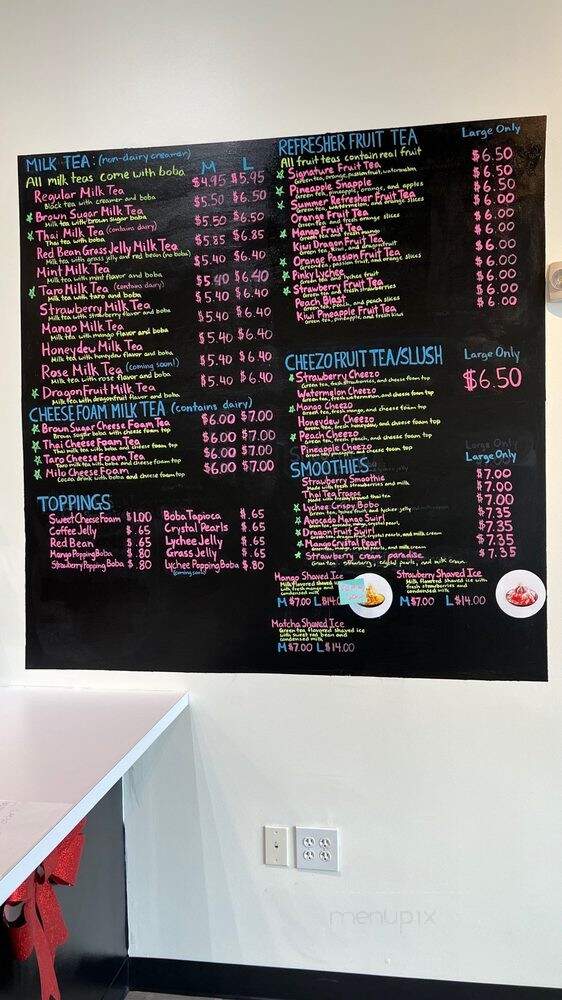 MILK TEA: (non-dairy creamer)
All milk teas come with boba
M L
Regular Milk Tea $4.95 $5.95
Black tea with creamer and boba
Brown Sugar Milk Tea $5.50 $6.50
Milk tea with brown sugar boba
Thai Milk Tea (contains dairy) $5.50 $6.50
Thai tea with boba
Red Bean Grass Jelly Milk Tea $5.85 $6.85
Milk tea with grass jelly and red bean (no boba)
Mint Milk Tea $5.40 $6.40
Milk tea with mint flavor and boba
Taro Milk Tea (contains dairy) $5.40 $6.40
Milk tea with taro and boba
Strawberry Milk Tea $5.40 $6.40
Milk tea with strawberry flavor and boba
Mango Milk Tea $5.40 $6.40
Milk tea with mango flavor and boba
Honeydew Milk Tea $5.40 $6.40
Milk tea with honeydew flavor and boba
Rose Milk Tea (coming soon!) $5.40 $6.40
Milk tea with rose flavor and boba
Dragon Fruit Milk Tea $5.40 $6.40
Milk tea with dragonfruit flavor and boba
CHEESE FOAM MILK TEA (contains dairy)
Brown Sugar Cheese Foam Tea $6.00 $7.00
Brown sugar boba with cheese foam top
Thai Cheese Foam Tea $6.00 $7.00
Thai milk tea with boba and cheese foam top
Taro Cheese Foam Tea $6.00 $7.00
Taro milk tea with boba and cheese foam top
Milo Cheese Foam $6.00 $7.00
Cocoa drink with boba and cheese foam top
TOPPINGS
Sweet Cheese Foam $1.00
Coffee Jelly $.65
Red Bean $.65
Mango Popping Boba $.80
Strawberry Popping Boba $.80
Boba Tapioca $.65
Crystal Pearls $.65
Lychee Jelly $.65
Grass Jelly $.65
Lychee Popping Boba $.80
(coming soon!)
REFRESHER FRUIT TEA Large Only
All fruit teas contain real fruit
Signature Fruit Tea $6.50
Green tea, orange, passionfruit, watermelon
Pineapple Snapple $6.50
Green tea, pineapple, orange, and apples
Summer Refresher Fruit Tea $6.50
Green tea, watermelon, and orange slices
Orange Fruit Tea $6.00
Green tea and fresh orange slices
Mango Fruit Tea $6.00
Green tea and fresh mango
Kiwi Dragon Fruit Tea $6.00
Green tea, kiwi, and dragonfruit
Orange Passion Fruit Tea $6.00
Green tea, passion fruit and orange slices
Pinky Lychee $6.00
Green tea and lychee fruit
Strawberry Fruit Tea $6.00
Green tea and fresh strawberries
Peach Blast $6.00
Green tea, peach, and peach slices
Kiwi Pineapple Fruit Tea $6.00
Green tea, pineapple, and fresh kiwi
CHEEZO FRUIT TEA/SLUSH Large Only
$6.50
Strawberry Cheezo
Green tea, fresh strawberries, and cheese foam top
Watermelon Cheezo
Green tea, fresh watermelon, and cheese foam top
Mango Cheezo
Green tea, fresh mango, and cheese foam top
Honeydew Cheezo
Green tea, fresh honeydew, and cheese foam top
Peach Cheezo
Green tea, fresh peach, and cheese foam top
Pineapple Cheezo
Green tea, pineapple, and cheese foam top
SMOOTHIES Large Only
Strawberry Smoothie $7.00
Made with fresh strawberries and milk
Thai Tea Frappe $7.00
Made with freshly brewed thai tea
Lychee Crispy Bobo $7.00
Green tea, lychee fruit, and lychee jelly
Avocado Mango Swirl $7.35
Green tea, avocado, mango, crystal pearl
Dragon Fruit Swirl $7.35
Green tea, dragonfruit, crystal pearl, and milk cream
Mango Crystal Pearl $7.35
Green tea, mango, crystal pearls, and milk cream
Strawberry cream paradise $7.35
Green tea, strawberry, crystal pearls, and milk cream
Mango Shaved Ice
Milk flavored shaved ice
with fresh mango and
condensed milk
M $7.00 L $14.0
Strawberry Shaved Ice
Milk flavored shaved ice with
fresh strawberries and
condensed milk
M $7.00 L $14.00
Matcha Shaved Ice
Green tea flavored shaved ice
with sweet red bean and
condensed milk
M $7.00 L $14.00
menupix